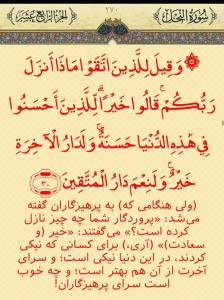 الجزء الرابع عشر ٢٧٠ سورة النحل
۞ وَقِيلَ لِلَّذِينَ اتَّقَوْا مَاذَا أَنزَلَ
رَبُّكُمْ ۚ قَالُوا خَيْرًا ۗ لِّلَّذِينَ أَحْسَنُوا
فِي هَٰذِهِ الدُّنْيَا حَسَنَةٌ ۚ وَلَدَارُ الْآخِرَةِ
خَيْرٌ ۚ وَلَنِعْمَ دَارُ الْمُتَّقِينَ ٣٠
(ولی هنگامی که) به پرهیزگاران گفته
می‌شد: «پروردگار شما چه چیز نازل
کرده است؟» می‌گفتند: «خیر (و
سعادت)» (آری،) برای کسانی که نیکی
کردند، در این دنیا نیکی است؛ و سرای
آخرت از آن هم بهتر است؛ و چه خوب
است سرای پرهیزگاران!